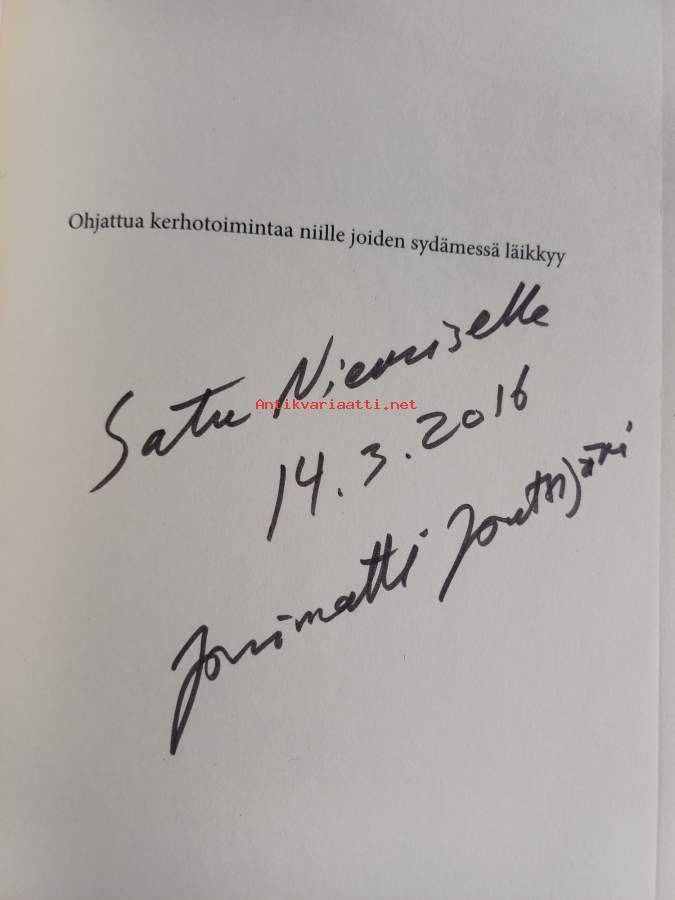 Ohjattua kerhotoimintaa niille joiden sydämessä läikkyy
Satu Niemiselle
Antikvariaatti.net
14.3.2016
Jounimatti Joutsijärvi